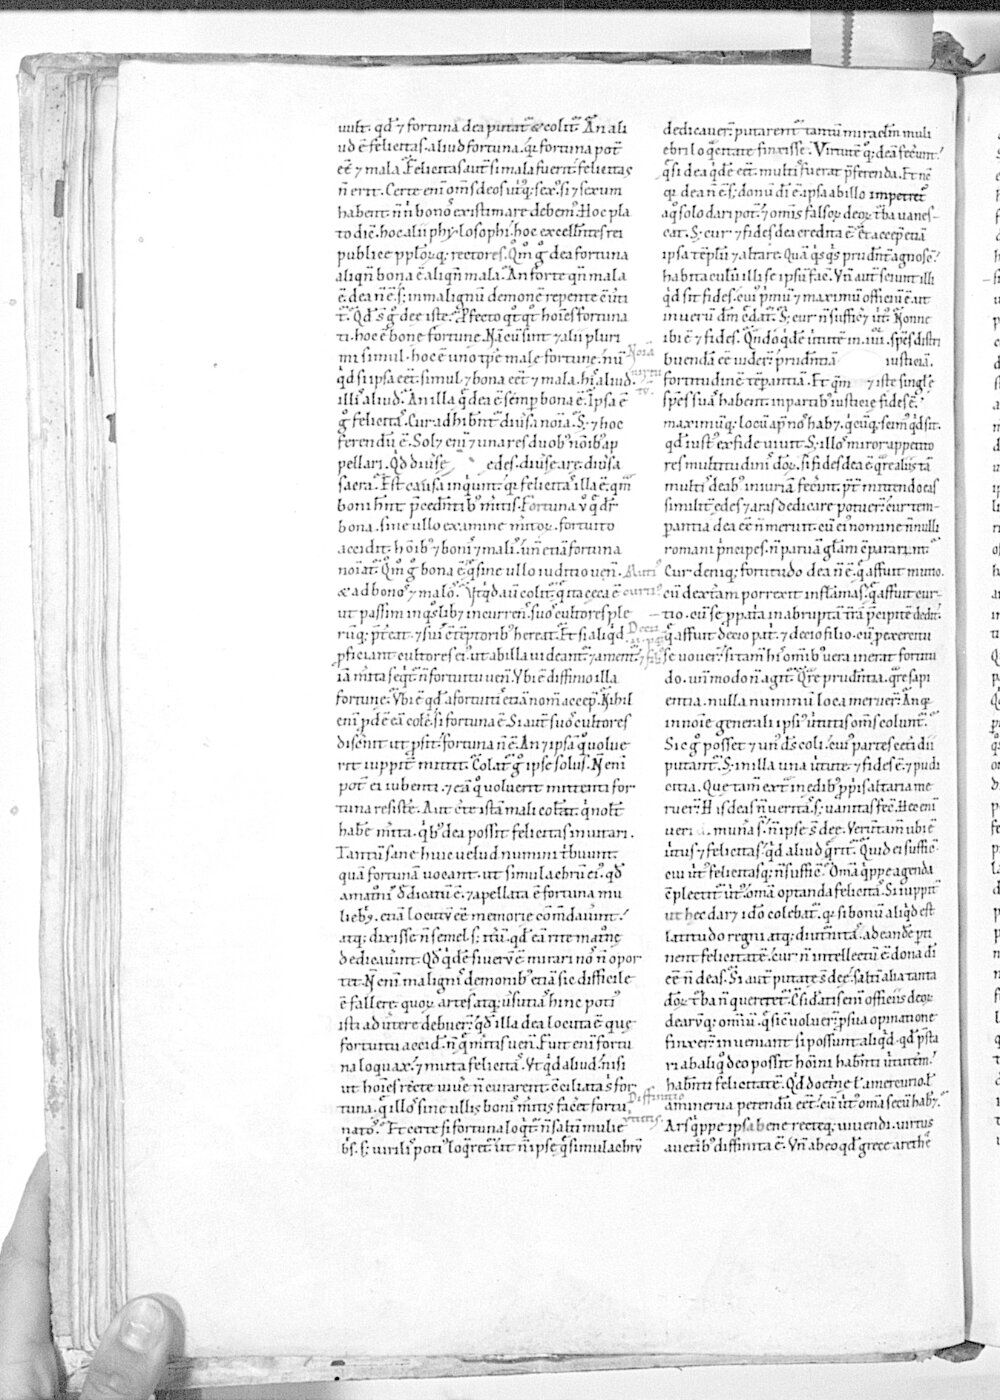 uult. qđ ⁊ fortuna dea putat᷑ & colit᷑. An ali
ud ē felicitas. aliud fortuna. q̄ fortuna pot̄
eē ⁊ mala. Felicitas aut̄ si mala fuerit felicitas
n̄ erit. Certe eni om̄s deos utrq; sexꝰ si ⁊ sexum
habent. n̄ n̄ bonos existimare debemꝰ. Hoc pla
to dic̄. hoc alii phylosophi. hoc excellentes rei
publice pplorūq; rectores. Qm̄ g̊ dea fortuna
aliqn̄ bona ē aliqn̄ mala. An forte qn̄ mala
ē. dea n̄ ē. s; in malignū demonē repente ē uti
t᷑. Qđ s̄ g̊ dee iste. Pfecto qt̄qt̄ hoīes fortuna
ti. hoc ē bone fortune. Nā cū sint ⁊ alii pluri
mi simul. hoc ē uno tp̄e male fortune. nū
qđ si ipsa eēt. simul ⁊ bona eēt ⁊ mala. his aliud.
illis aliud. An illa q̄ dea ē semp bona ē. Ipsa ē
g̊ felicitas. Cur adhibent᷑ diuersa noīa. S; ⁊ hoc
ferendū ē. Solꝫ eni ⁊ una res duobꝰ noībꝰ ap
pellari. Qđ diuerse edes. diuerse are. diuersa
sacra. Est causa inquiunt. q̄ felicitas illa ē. qm̄
boni hn̄t p̄cedentibꝰ meritis. Fortuna ū q̄ dr̄
bona. sine ullo examine meritoꝝ. fortuito
accidit. hoībꝰ ⁊ bonis ⁊ malis. un̄ etiā fortuna
noīat᷑. Qm̄ g̊ bona ē q̄ sine ullo iuditio uenit
& ad bonos ⁊ malos. Ut qđ aū colit᷑. q̄ ita ceca ē
ut passim in qslibꝫ incurrens. suos cultores ple
rūq; p̄t̄eat. ⁊ suis cōtēptoribꝰ hereat. Et si aliqđ
pficiunt cultores eiꝰ. ut ab illa uideant᷑ ⁊ ament᷑.
iā merita seqt᷑. n̄ fortuitu uenit. Vbi ē diffinitio illa
fortune. Vbi ē qđ a fortuitis etiā nom̄ accep. Nihil
eni p̄dē ē eā colere. si fortuna ē. Si aut̄ suos cultores
discernit ut psit. fortuna n̄ ē. An ⁊ ipsā q̊ uolue
rit iuppit᷑ mittit. Colat᷑ g̊ ipse solus. N̄ eni
pot̄ ei iubenti. ⁊ eā q̊ uoluerit mittenti for
tuna resistere. Aut certe istā mali colant. q̄ nolt̄
habere merita. q̄bꝰ dea possit felicitas inuitari.
Tantū sane huic uelud numini tribuunt.
quā fortunā uocant. ut simulacrū eiꝰ. qđ
a matronis dedicatū ē. ⁊ apellata ē fortuna mu
liebris. etiā locutū eē memorie commendauerint.
atq; dixisse n̄ semel s; iterū. qđ eā rite matrone
dedicauerint. Qđ qdē si uerū ē mirari nos n̄ opor
tet. N̄ eni malignis demonibꝰ etiā sic difficile
ē fallere. quoꝝ artes atq; uersutias hinc potiꝰ
isti aduertere debuerunt. qđ illa dea locuta ē que
fortuitu accidit. n̄ q̄ meritis uenit. Fuit eni fortu
na loquax. ⁊ muta felicitas. Ut qđ aliud. nisi
ut hoīes recte uiuere n̄ curarent. cōciliata s̄ for
tuna. q̄ illos sine ullis bonis meritis faceret fortu
natos. Et certe si fortuna loqt᷑. n̄ saltim mulie
bris. s; uirilis potiꝰ loqret᷑. ut n̄ ipse q̄ simulacrū
Noīa
Muti
curtiꝰ
Deciꝰ
Diffinitio
uirtutis
dedicauerunt. putarent᷑ tantū miraculum muli
ebri loq̄citate finxisse. Virtutē q; deā fecerunt.
q̄ si dea qdē eēt. multis fuerat p̄ferenda. Et nc̄
qr dea n̄ ē. s; donū di ē. ipsa ab illo impetret᷑
a q̊ solo dari pot̄. ⁊ omnis falsoꝝ deoꝝ turba uanes-
cat. S; cur ⁊ fides dea credita ē. Et accepit etiā
ipsa tēplū ⁊ altare. Quā qsqs prudenter agnoscit.
habitaculū illi se ipsū facit. Vn̄ aut̄ sciunt illi
qđ sit fides. cuiꝰ p̄mū ⁊ maximū officiū ē. ut
in uerū dm̄ credat᷑. S; cur n̄ suffic̄ uirtus. Nonne
ibi ē ⁊ fides. Qn̄doqdē uirtutē in .iiii. species distri
buendā eē uiderunt. prudentiā iusticiā.
fortitudinē tēperantiā. Et qm̄ ⁊ iste singule
species suas habent. in partibꝰ iusticie fides ē.
maximūq; locū apud nos habꝫ. q̄cūq; scimꝰ qđ sit.
qđ iustꝰ ex fide uiuit. S; illos miror appetito
res multitudinis deoꝝ. si fides dea ē. q̄re aliis tā
multis deabꝰ iniuriā fecerint. p̄termittendo eas
similit᷑ edes ⁊ aras dedicare potuerunt. cur tem-
perantia dea eē n̄ meruit. cū eiꝰ nomine n̄ nulli
romani p̄ncipes. n̄ paruā gl̄am cōpararint.
Cur deniq; fortitudo dea n̄ ē. q̄ affuit mutio.
cū dextram porrexit in flāmas. q̄ affuit cur-
tio. cū se p patria in abruptā terrā p̄cipitē dedit.
q̄ affuit decio patri. ⁊ decio filio. cū p exercitu
se uouerunt. si tam̄ his omībꝰ uera inerat fortitu
do. un̄ modo n̄ agit᷑. Q̄re prudentia. q̄re sapi
entia. nulla numinū loca meruerunt. An qr
in noīe generali ipsiꝰ uirtutis om̄s colunt᷑.
Sic g̊ posset ⁊ unꝰ ds̄ coli. cuiꝰ partes ceteri dii
putant᷑. S; in illa una uirtute. ⁊ fides ē. ⁊ pudi
citia. Que tam̄ extra in edibꝰ ppriis altaria me
ruerunt. Has deas n̄ ueritas. s; uanitas fecit. Hec eni
ueri munera s̄. n̄ ipse s̄ dee. Verūtam̄ ubi ē
uirtus ⁊ felicitas. qđ aliud q̄rit᷑. Quid ei suffic̄.
cui uirtus felicitasq; n̄ suffic̄. Omā q̄ppe agenda
cōplectit᷑ uirtus. omā optanda felicitas. Si iuppit᷑
ut hec daret ido colebat᷑. qr si bonū aliqđ est
latitudo regni atq; diuturnitas. ad eandē perti
nent felicitatē. cur n̄ intellectū ē. dona di
eē n̄ deas. Si aut̄ putate s̄ dee. saltim alia tanta
deoꝝ turba n̄ quereret᷑. Csideratis eni officiis deoꝝ
dearūq; omniū. q̄ sic uoluerunt p sua opinatione
finxerunt. inueniant si possunt aliqđ. qđ p̄sta
ri ab aliq̊ deo possit homini habenti uirtutem.
habenti felicitatē. Qđ doctrine l̄ a mercurio. l̄
a minerua petendū eēt. cū uirtus omā secū habꝫ.
Ars q̄ppe ipsa bene recteq; uiuendi. virtus
a ueteribꝰ diffinita ē. Vn̄ ab eo qđ grece arethe